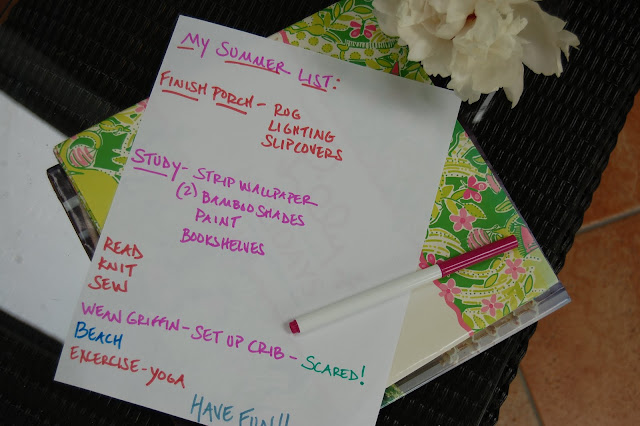 MY SUMMER LIST:
FINISH PORCH - RUG
LIGHTING
SLIPCOVERS
STUDY - STRIP WALLPAPER
(2) BAMBOO SHADES
PAINT
BOOKSHELVES
READ
KNIT
SEW
WEAN GRIFFIN - SET UP CRIB - SCARED!
BEACH
EXCERCISE - YOGA
HAVE FUN!!